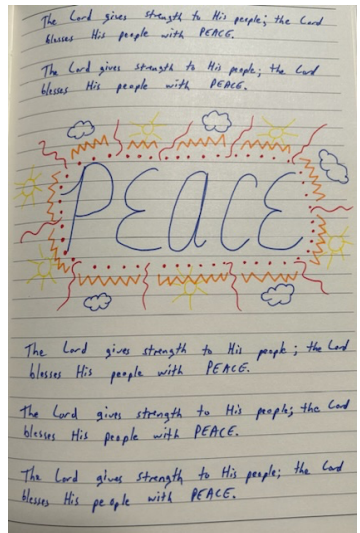 The Lord gives strength to His people; the Lord
blesses His people with PEACE.
The Lord gives strength to His people; the Lord
blesses His people with PEACE.
PEACE
The Lord gives strength to His people; the Lord
blesses His people with PEACE.
The Lord gives strength to His people; the Lord
blesses His people with PEACE.
The Lord gives strength to His people; the Lord
blesses His people with PEACE.